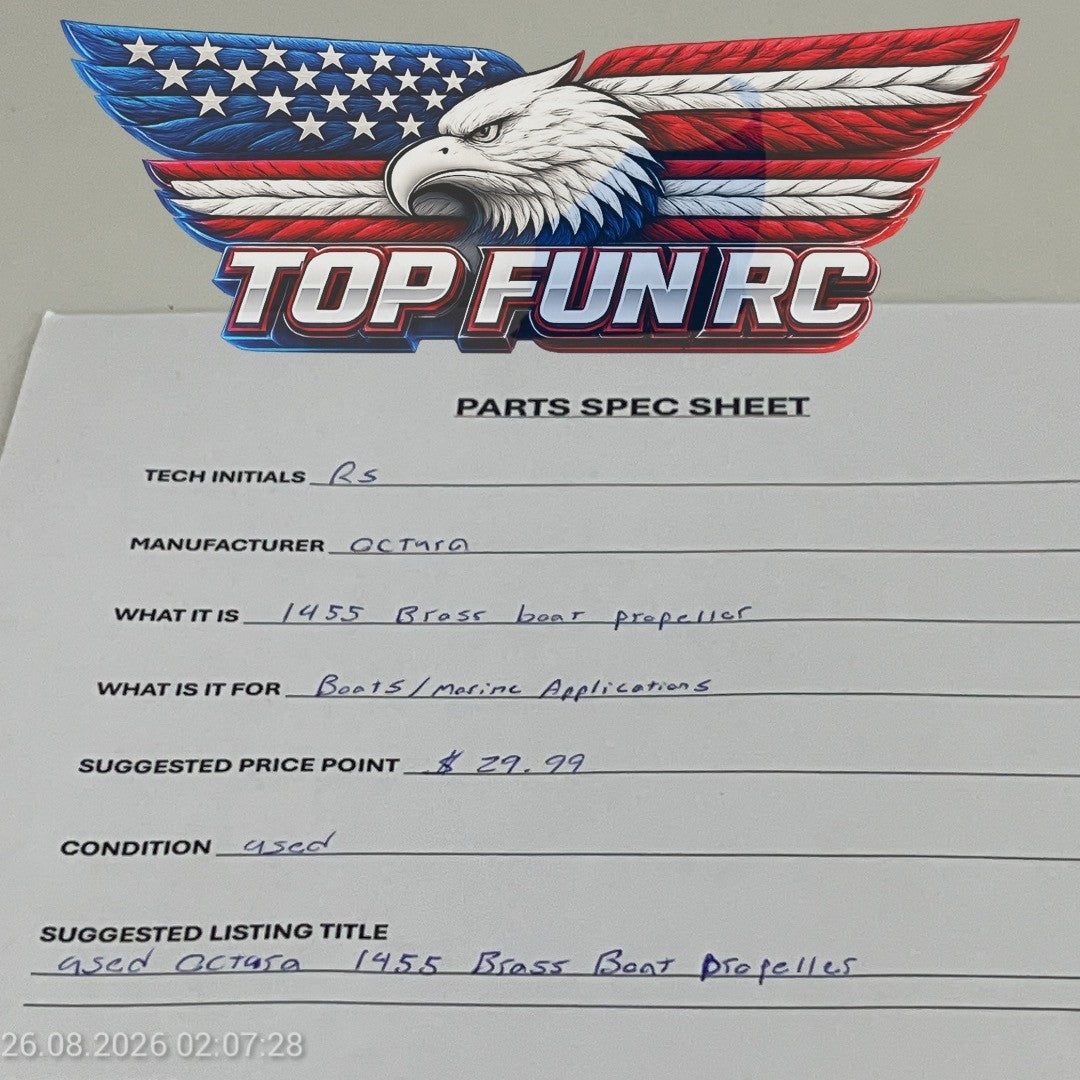 TOP FUN RC
PARTS SPEC SHEET
TECH INITIALS RS
MANUFACTURER OCTURA
WHAT IT IS 1455 Brass boat propeller
WHAT IS IT FOR Boats/marine Applications
SUGGESTED PRICE POINT $ 29.99
CONDITION used
SUGGESTED LISTING TITLE
used OCTURA 1455 Brass Boat propeller
26.08.2026 02:07:28